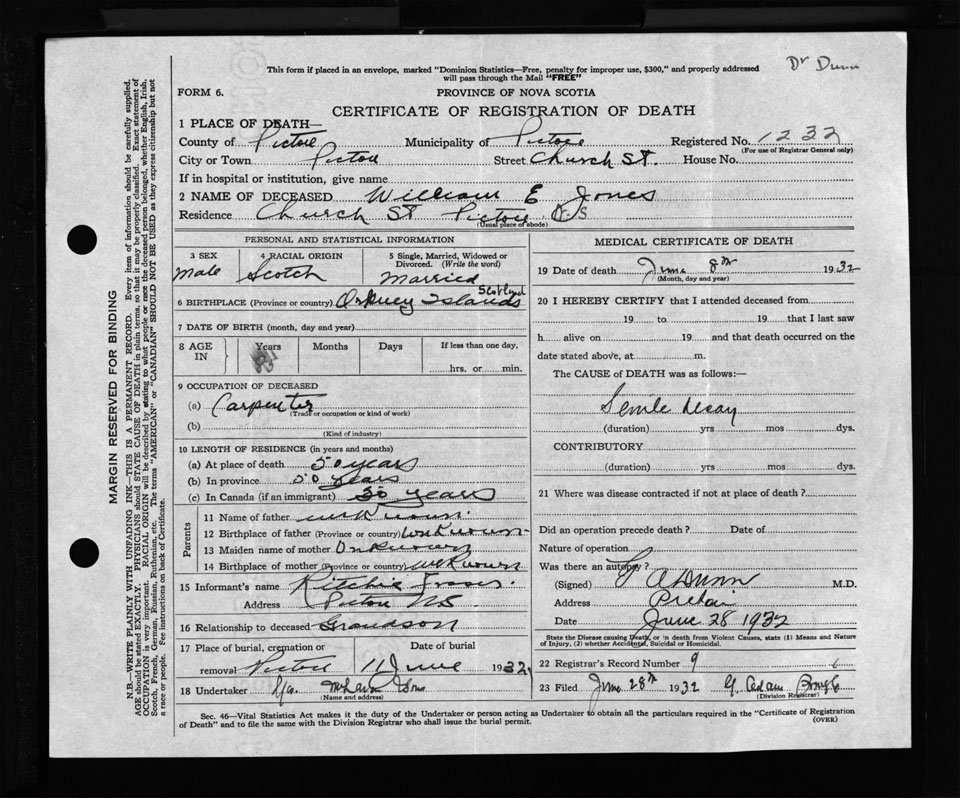 Dr Dunn
This form if placed in an envelope, marked "Dominion Statistics—Free, penalty for improper use, $300," and properly addressed
will pass through the Mail "FREE"
FORM 6.
PROVINCE OF NOVA SCOTIA
CERTIFICATE OF REGISTRATION OF DEATH
1 PLACE OF DEATH—
County of Pictou Municipality of Pictou Registered No. 1232
(For use of Registrar General only)
City or Town Pictou Street Church St. House No.
If in hospital or institution, give name
2 NAME OF DECEASED William E Jones
Residence Church St Pictou N S
(Usual place of abode)
PERSONAL AND STATISTICAL INFORMATION
3 SEX 4 RACIAL ORIGIN 5 Single, Married, Widowed or
Divorced. (Write the word)
Male Scotch Married
Scotland
6 BIRTHPLACE (Province or country) Orkney Islands
7 DATE OF BIRTH (month, day and year)
8 AGE IN Years Months Days If less than one day,
hrs. or min.
9 OCCUPATION OF DECEASED
(a) Carpenter
(Trade or occupation or kind of work)
(b)
(Kind of industry)
10 LENGTH OF RESIDENCE (in years and months)
(a) At place of death 50 years
(b) In province 50 years
(c) In Canada (if an immigrant) 50 years
Parents
11 Name of father unknown
12 Birthplace of father (Province or country) unknown
13 Maiden name of mother Unknown
14 Birthplace of mother (Province or country) unknown
15 Informant's name Ritchie
Address Pictou NS
16 Relationship to deceased Grandson
17 Place of burial, cremation or Date of burial
removal Pictou 11 June 1932
18 Undertaker & Sons
(Name and address)
MEDICAL CERTIFICATE OF DEATH
19 Date of death June 8th 1932
(Month, day and year)
20 I HEREBY CERTIFY that I attended deceased from
19 to 19 that I last saw
h alive on 19 and that death occurred on the
date stated above, at m.
The CAUSE of DEATH was as follows:—
Senile decay
(duration) yrs mos dys.
CONTRIBUTORY
(duration) yrs mos dys.
21 Where was disease contracted if not at place of death?
Did an operation precede death? Date of
Nature of operation
Was there an autopsy?
(Signed) A Dunn M.D.
Address Pictou
Date June 28 1932
State the Disease causing Death, or in death from Violent Causes, state (1) Means and Nature
of Injury, (2) whether Accidental, Suicidal or Homicidal.
22 Registrar's Record Number 9
23 Filed June 28th 1932 G. Adam
(Division Registrar)
Sec. 46—Vital Statistics Act makes it the duty of the Undertaker or person acting as Undertaker to obtain all the particulars required in the "Certificate of Registration
of Death" and to file the same with the Division Registrar who shall issue the burial permit.
(OVER)
MARGIN RESERVED FOR BINDING
N.B.—WRITE PLAINLY WITH UNFADING INK—THIS IS A PERMANENT RECORD. Every item of information should be carefully supplied.
AGE should be stated EXACTLY. PHYSICIANS should STATE CAUSE OF DEATH in plain terms, so that it may be properly classified. Exact statement of
OCCUPATION is very important. RACIAL ORIGIN will be described by stating to what people or race the deceased person belonged, whether English, Irish,
Scotch, French, German, Russian, Ruthenian, etc. The terms "AMERICAN" or "CANADIAN" SHOULD NOT BE USED as they express citizenship but not
a race or people. See instructions on back of Certificate.